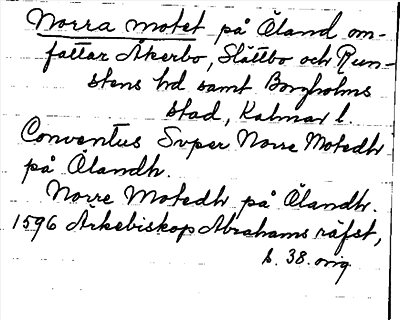 Norra motet på Öland om-
fattar Åkerbo, Slättbo och Run-
stens hd samt Borgholms
stad, Kalmar l.
Conventus Svper Norre Motedh
på Ölandh.
Norre Motedh på Ölandh.
1596 Ärkebiskop Abrahams räfst,
s. 38. orig